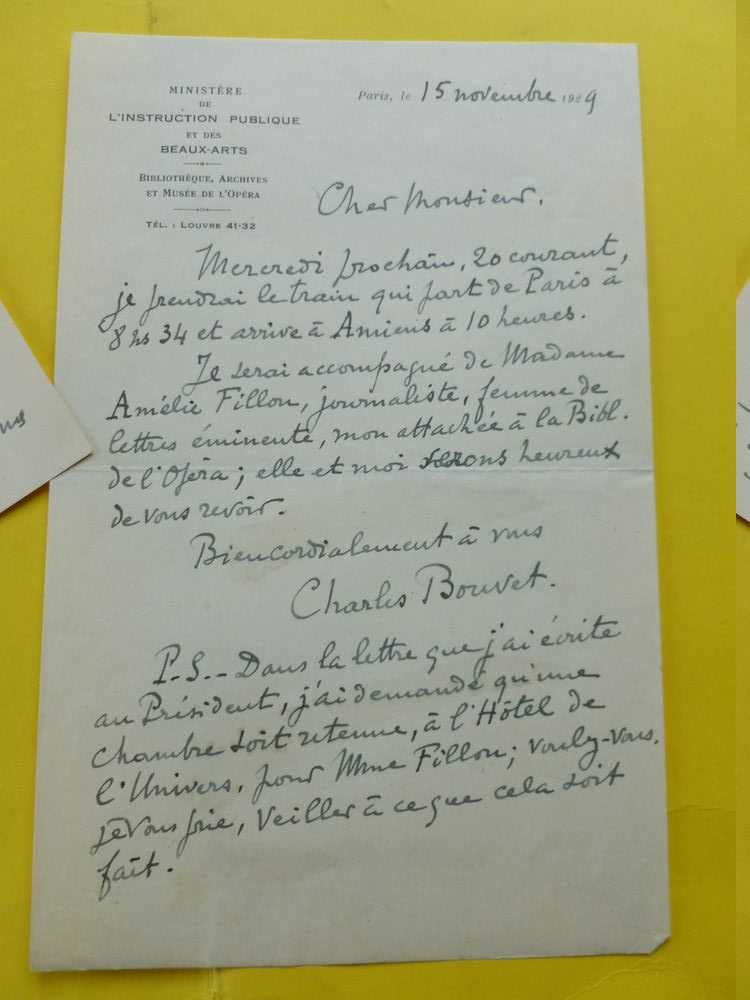 MINISTÈRE
DE
L'INSTRUCTION PUBLIQUE
ET DES
BEAUX-ARTS
BIBLIOTHÈQUE, ARCHIVES
ET MUSÉE DE L'OPÉRA
TÉL. : LOUVRE 41-32
Paris, le 15 novembre 1929
Cher Monsieur.
Mercredi prochain, 20 courant,
je prendrai le train qui part de Paris à
8 hs 34 et arrive à Amiens à 10 heures.
Je serai accompagné de Madame
Amélie Fillon, journaliste, femme de
lettres éminente, mon attachée à la Bibl.
de l'Opéra ; elle et moi serons heureux
de vous revoir.
Bien cordialement à vous
Charles Bouvet.
P.S. - Dans la lettre que j'ai écrite
au Président, j'ai demandé qu'une
chambre soit retenue, à l'Hôtel de
l'Univers, pour Mme Fillon ; voulez-vous,
je vous prie, veiller à ce que cela soit
fait.